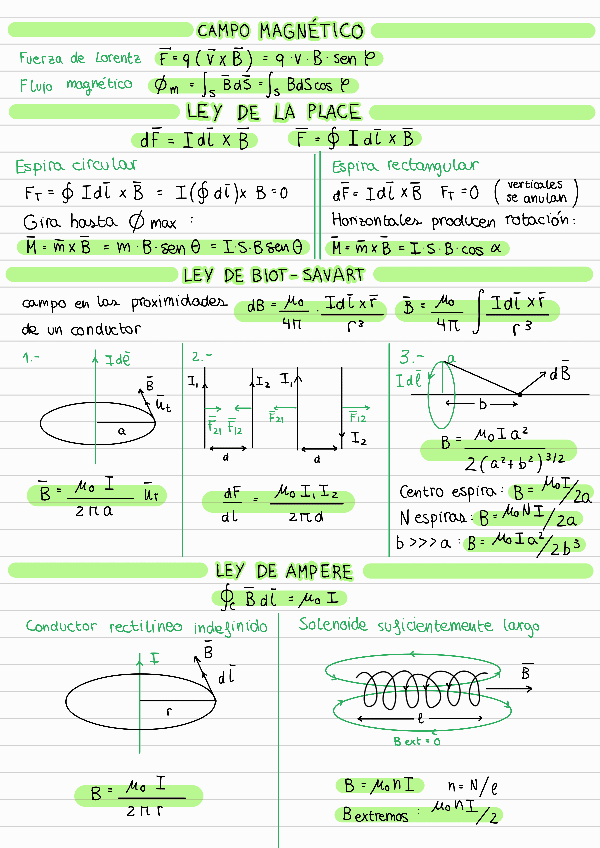 CAMPO MAGNÉTICO
Fuerza de Lorentz F̅ = q ( v̅ x B̅ ) = q · v · B · sen φ
Flujo magnético ϕm = ∫s B̅ dS̅ = ∫s B dS cos φ
LEY DE LA PLACE
dF̅ = I dl̅ x B̅    F̅ = ∮ I dl̅ x B̅
Espira circular
F_T = ∮ I dl̅ x B̅ = I (∮ dl̅) x B = 0
Gira hasta ϕ max :
M̅ = m̅ x B̅ = m · B · sen θ = I · S · B sen θ
Espira rectangular
dF̅ = I dl̅ x B̅    F_T = 0 ( verticales se anulan )
Horizontales producen rotación:
M̅ = m̅ x B̅ = I · S · B · cos α
LEY DE BIOT-SAVART
campo en las proximidades
de un conductor
dB = μ₀/4π · I dl̅ x r̅ / r³    B̅ = μ₀/4π ∫ I dl̅ x r̅ / r³
1.-
I dl̅
B̅
u̅t
a
B̅ = μ₀ I / 2πa u̅r
2.-
I₁ I₂ I₁
F̅₂₁ F̅₁₂ F̅₂₁ F̅₁₂
I₂
d d
dF/dl = μ₀ I₁ I₂ / 2πd
3.- a
I dl̅ dB̅
b
B = μ₀ I a² / 2(a² + b²)^3/2
Centro espira : B = μ₀ I / 2a
N espiras : B = μ₀ N I / 2a
b >>> a : B = μ₀ I a² / 2b³
LEY DE AMPERE
∮c B̅ dl̅ = μ₀ I
Conductor rectilíneo indefinido
I B̅
dl̅
r
B = μ₀ I / 2πr
Solenoide suficientemente largo
B̅
l
B ext = 0
B = μ₀ n I    n = N/l
B extremos : μ₀ n I / 2